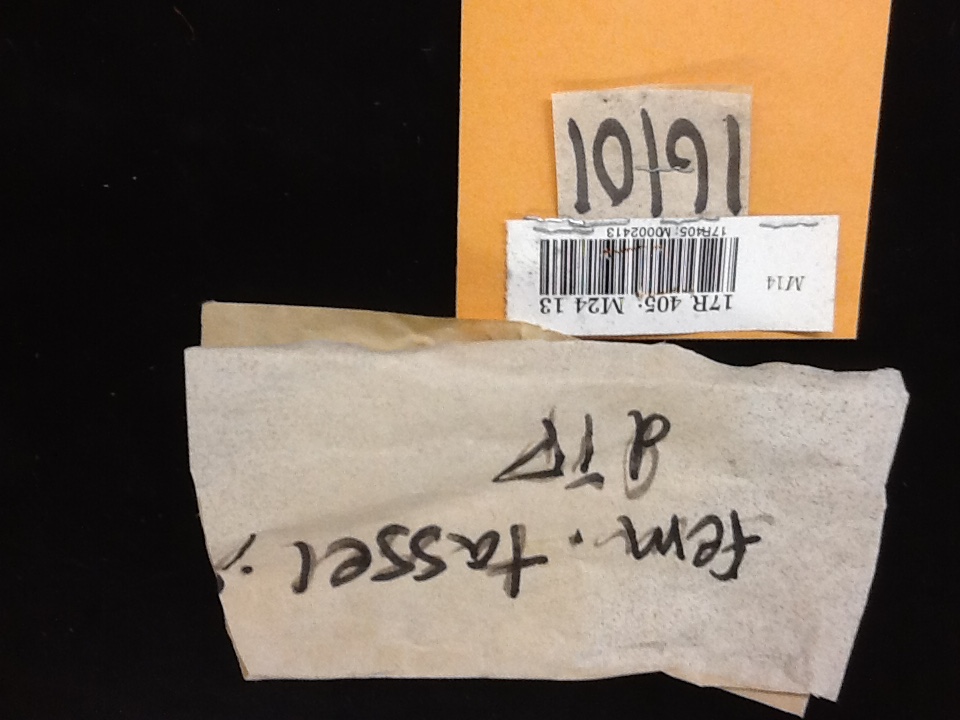 fem. tassel.;
dTP
17R 405: M24 13
M14
17R405:M0002413
16101